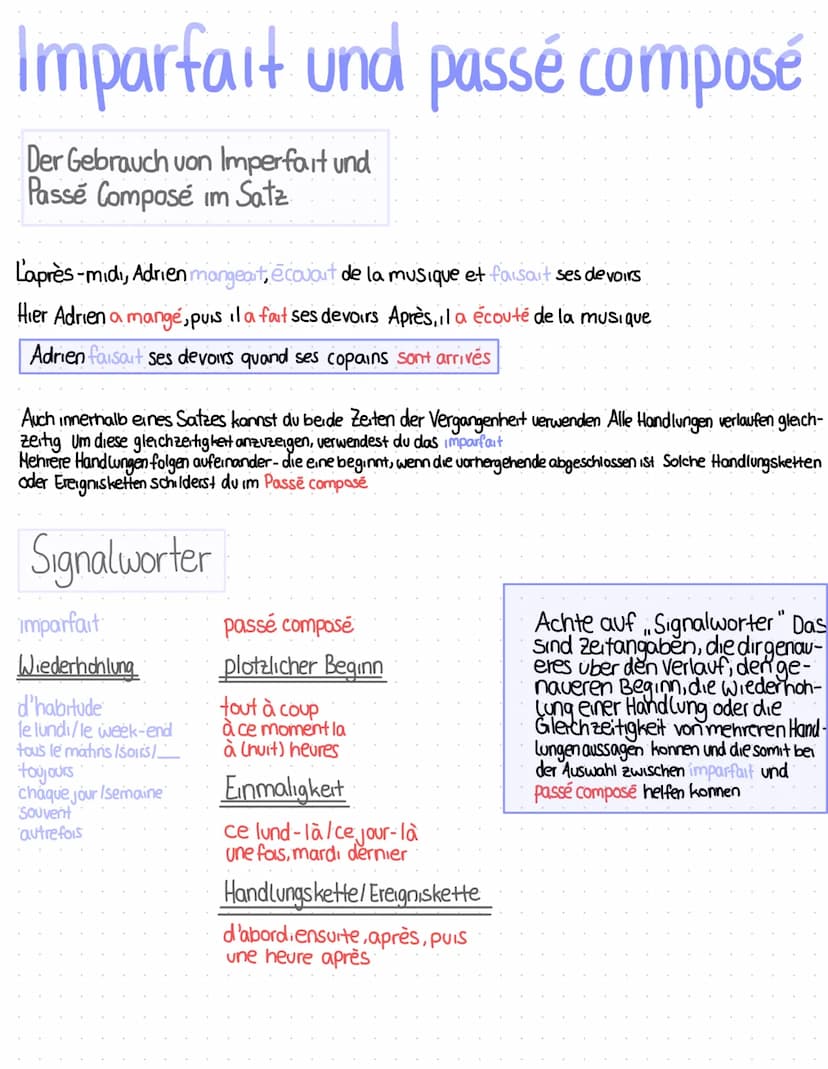 Imparfait und passé composé
Der Gebrauch von Imperfait und
Passé Composé im Satz
L'après-midi, Adrien mangeait, écovait de la musique et faisait ses devoirs
Hier Adrien a mangé, puis il a fait ses devoirs Après, il a écouté de la musique
Adrien faisait ses devoirs quand ses copains sont arrivés
Auch innerhalb eines Satzes kannst du beide Zeiten der Vergangenheit verwenden Alle Handlungen verlaufen gleich-
zeitig Um diese gleichzeitigkeit anzuzeigen, verwendest du das imparfait
Mehrere Handlungen folgen aufeinander - die eine beginnt, wenn die vorhergehende abgeschlossen ist Solche Handlungsketten
oder Ereignisketten schilderst du im Passé composé
Signalworter
imparfait
Wiederhohlung
d'habitude
le lundi/le week-end
tous le matins/soirs/__
toujours
chaque jour/semaine
souvent
autrefois
passé composé
plotzlicher Beginn
tout à coup
à ce moment la
à (huit) heures
Einmaligkeit
ce lund-là/ce jour-là
une fois, mardi dernier
Handlungskette/Ereigniskette
d'abord, ensuite, après, puis
une heure après
Achte auf „Signalworter" Das
sind Zeitangaben, die dir genau-
eres uber den Verlauf, den ge-
naueren Beginn, die Wiederhoh-
lung einer Handlung oder die
Gleichzeitigkeit von mehreren Hand-
lungen aussagen konnen und die somit bei
der Auswahl zwischen imparfait und
passé composé helfen konnen